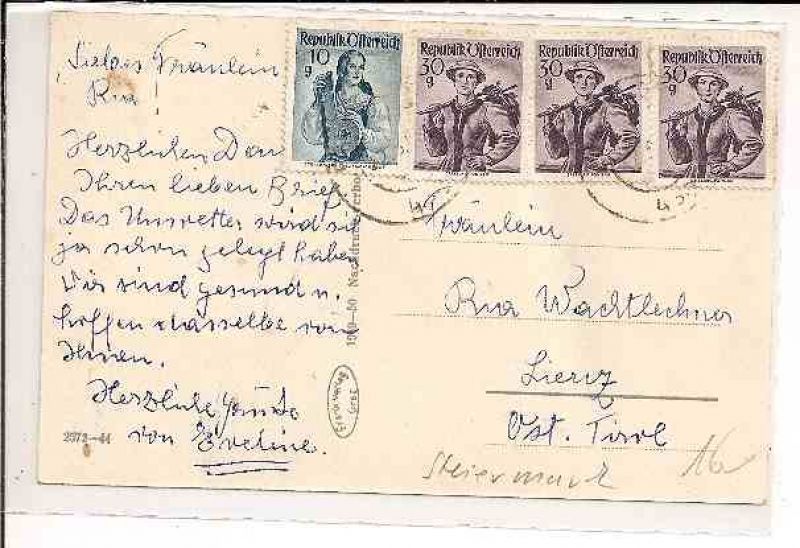 Liebes Fräulein
Ria!
Herzlichen Dank
Ihren lieben Brief
Das Unwetter wird sich
ja schon gelegt haben
Wir sind gesund u.
hoffen dasselbe von
Ihnen.
Herzliche Grüße
von Eveline.
2373-44
1949-50 Nachdruck verbo
Graz
Republik Österreich
10
g
Republik Österreich
30
g
Republik Österreich
30
g
Republik Österreich
30
g
Fräulein
Ria Wachtlechner
Lienz
Ost. Tirol
Steiermark
16